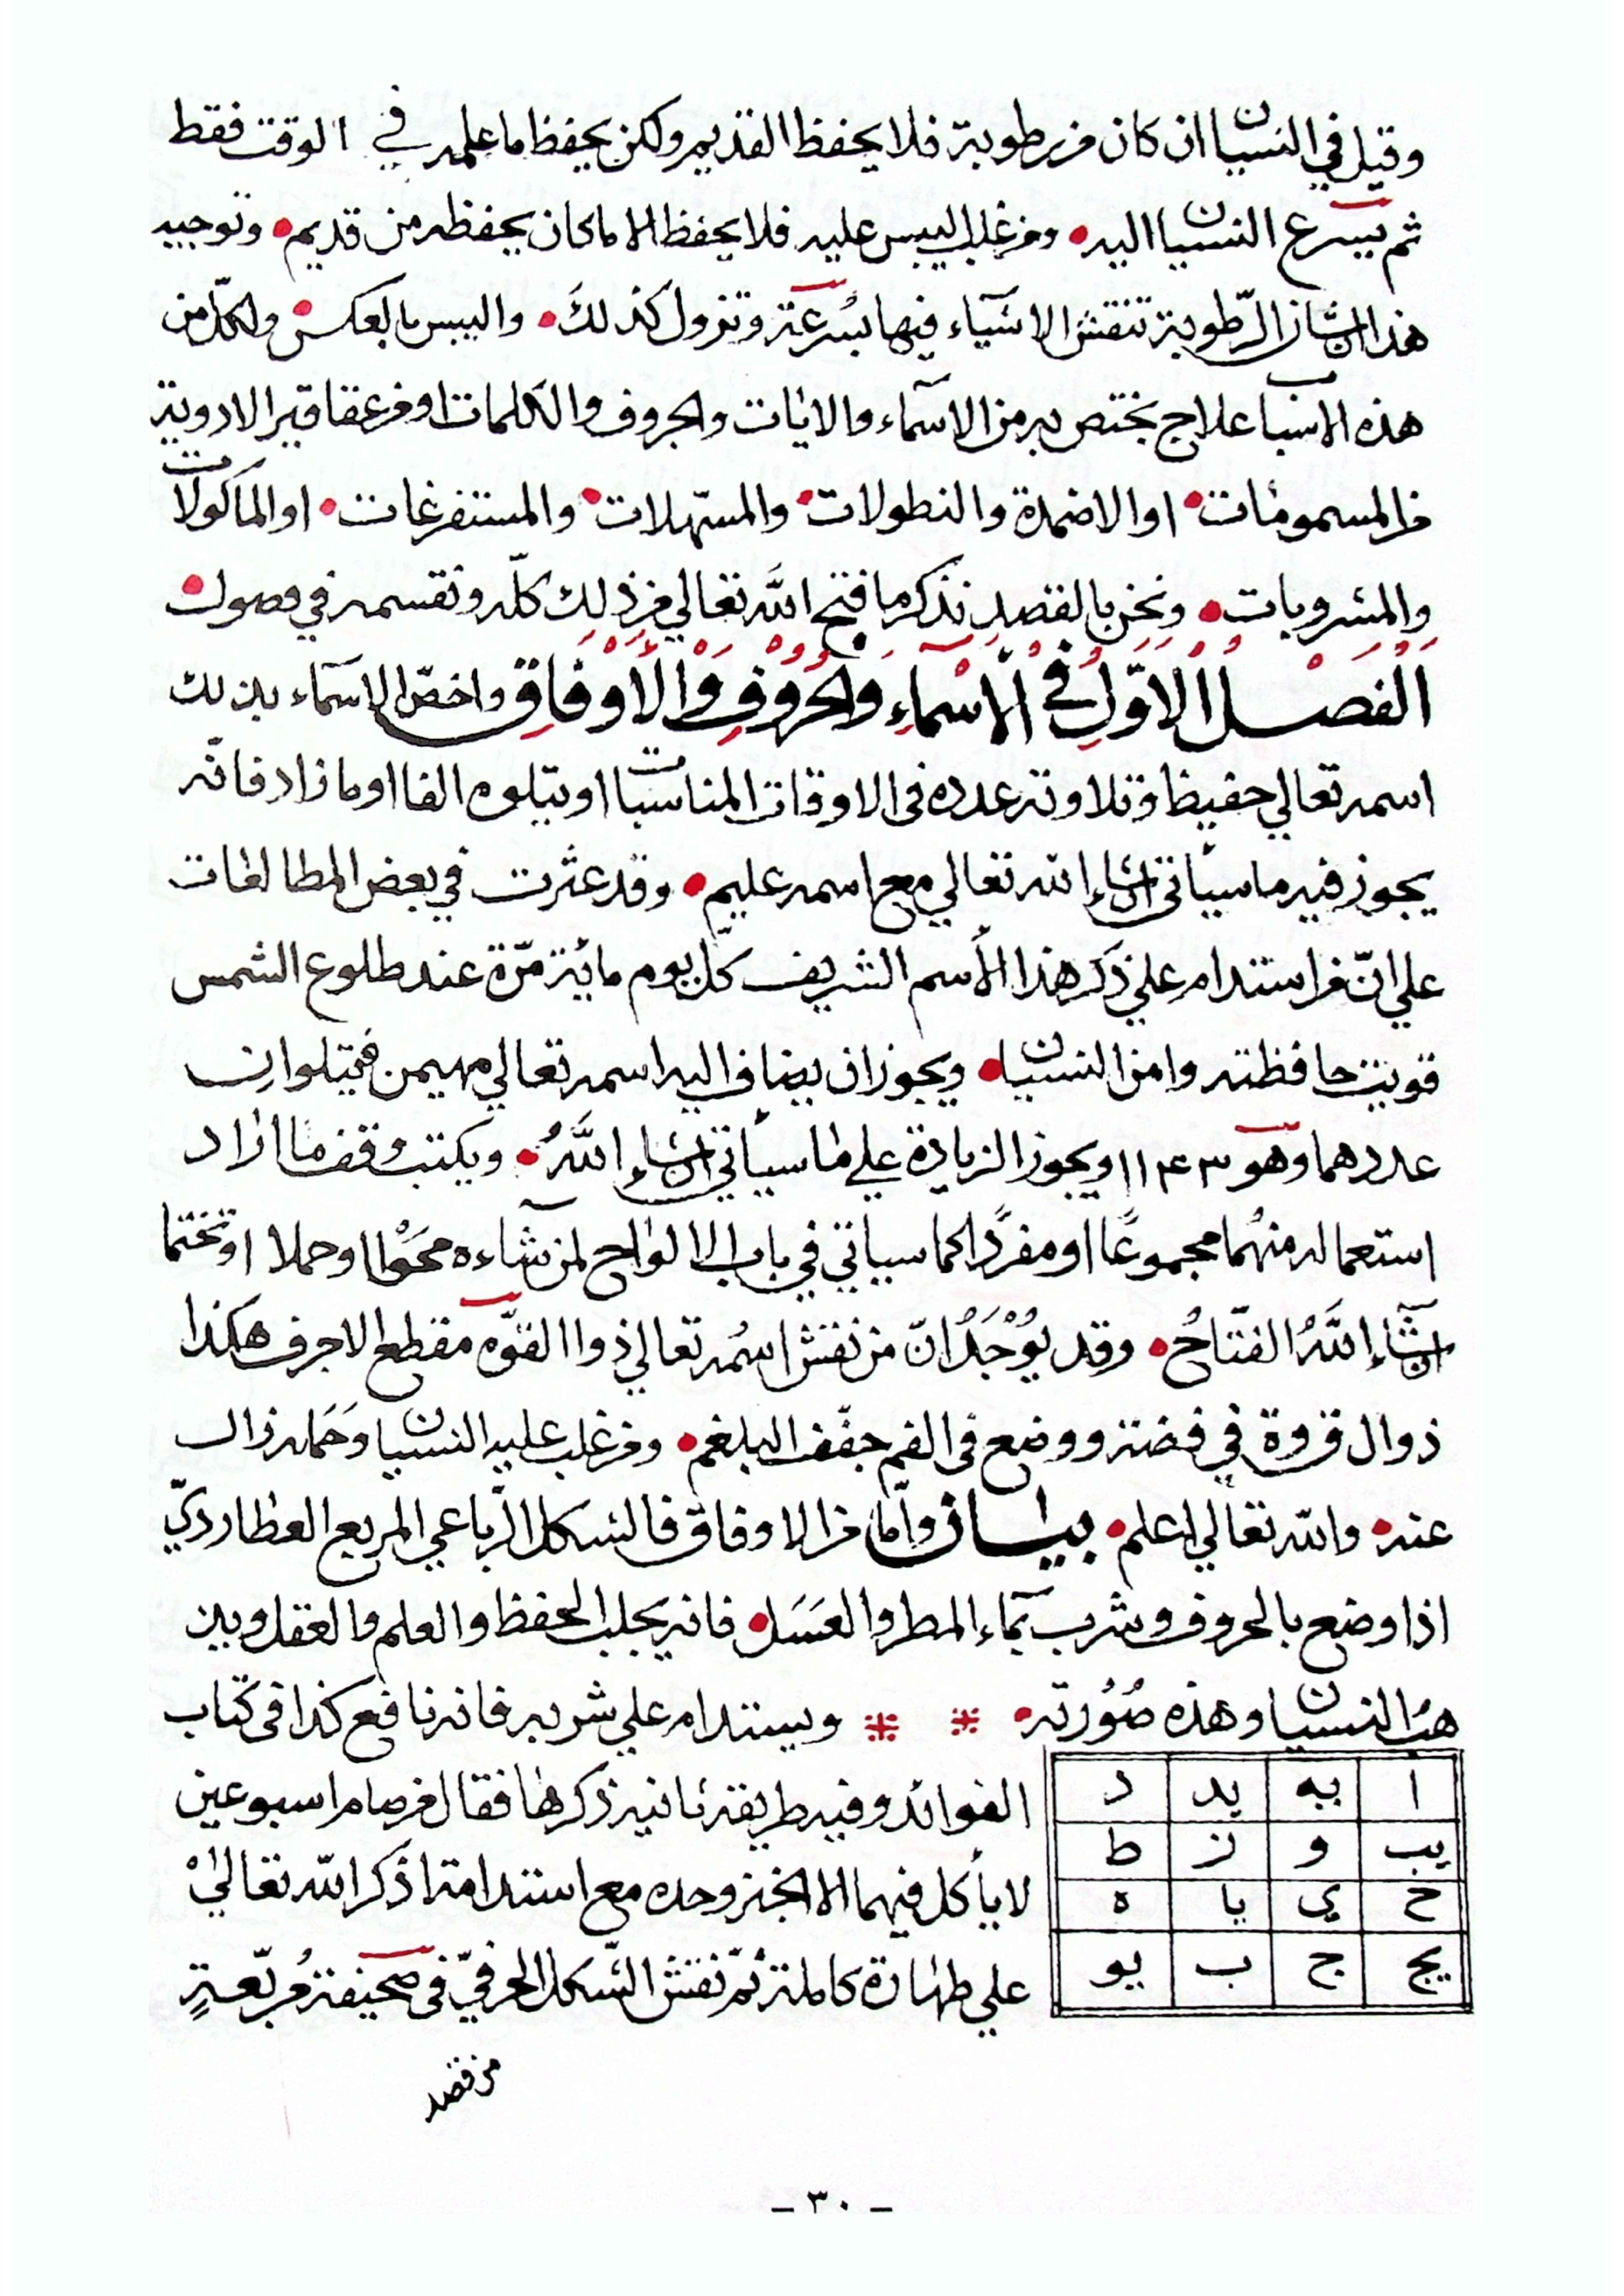 وقيل في النسيان ان كان من رطوبة فلا يحفظ القديم ولكن يحفظ ما علمه في الوقت فقط
ثم يسرع النسيان اليه • ومن غلب اليبس عليه فلا يحفظ الا ما كان يحفظه من قديم • وتوجيه
هذا ان شان الرّطوبة تنقش الاشيآء فيها بسُرعَة وتزول كذلكَ • واليبس بالعكس • ولكلّ من
هذه الاسباب علاج يختص به من الاسمآء والايات والحروف والكلمات او من عقاقير الادوية
من المسمومات • او الاضمدة والنطولات • والمسّهلات • والمستفرغات • او الماكولات
والمشروبات • ونحن بالقصد نذكر ما فتح اللَّه تعالي من ذلك كلّه ونقسمه في فصول •
اَلْفَصْلُ الْاَوَّلُ في اْلاَسْمآءِ وَالْحُرُوْفِ وَالْاَوْفَاقِ واخصّ الاسمآء بذلك
اسمه تعالي حفيظ وتلاوته عدده فى الاوقات المناسبات او يتلوه الفا او ما زاد فانّه
يجوز فيه ما سيأتى ان شاء الله تعالي مع اسمه عليم • وقد عثرت في بعض المطالعات
علي انّ من استدام علي ذكر هذا الأسم الشريف كلّ يوم مائة مّرة عند طلوع الشمس
قويت حافظته وامن النسيان • ويجوز ان يضاف اليه اسمه تعالي مهيمن فيتلوان
عددهما وهو ١١٤٣ ويجوز الزيادة علي ما سيأتي ان شاء اللَّهُ • ويكتب وقف ما اراد
استعماله منهُما مجموعًا او مفردًا كما سياتي في باب الالواح لمن شآءه محَوْا او حملا او تختما
ان شآء اللَّهُ الفتّاحُ • وقد يُوْجَدُ انّ من نقش اسُمه تعالي ذوا القوّه مقطع الاحرف هكذا
ذ و ال ق و ة في فضة ووضع فى الفم جفّف البلغم • ومن غلب عليه النسيان وحَمله زال
عنه • والله تعالي اعلم • بيان وأمّا من الاوفاق فالشكل الرّباعي المربع العطارديّ
اذا وضع بالحروف وشرب بمآء المطر والعَسَل • فانه يجلب الحفظ والعلم والعقل ويبن
هب النسيان وهذه صُوُرته • ويستدام علي شربه فانه نافع كذا فى كتاب
الفوائد وفيه طريقة ثانية ذكرها فقال من صام اسبوعين
لا يأكل فيهما الا الخبز وحده مع استدامة ذكر الله تعاليْ
علي طهارة كاملة ثمّ نقش الشّكل الحرفيّ فى صحيفة مُربّعةٍ
ا يه يد د
يب و ز ط
ح ي يا ه
يج ج ب يو
من فضه
- ٣٠ -